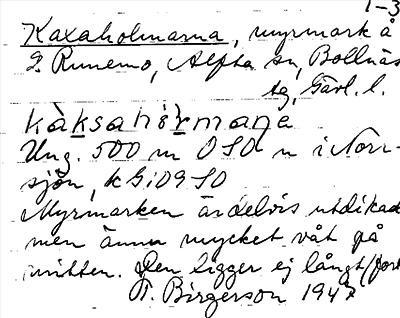 1-3
Kaxaholmarna, myrmark å
S. Runemo, Alfta sn, Bollnäs
tg, Gävl. l.
kàksahòrmana
Ung. 500 m OSO n i Norr-
sjön, kG:09 SO
Myrmarken är delvis utdikad
men ännu mycket våt på
mitten. Den ligger ej långt
T. Birgerson 1947